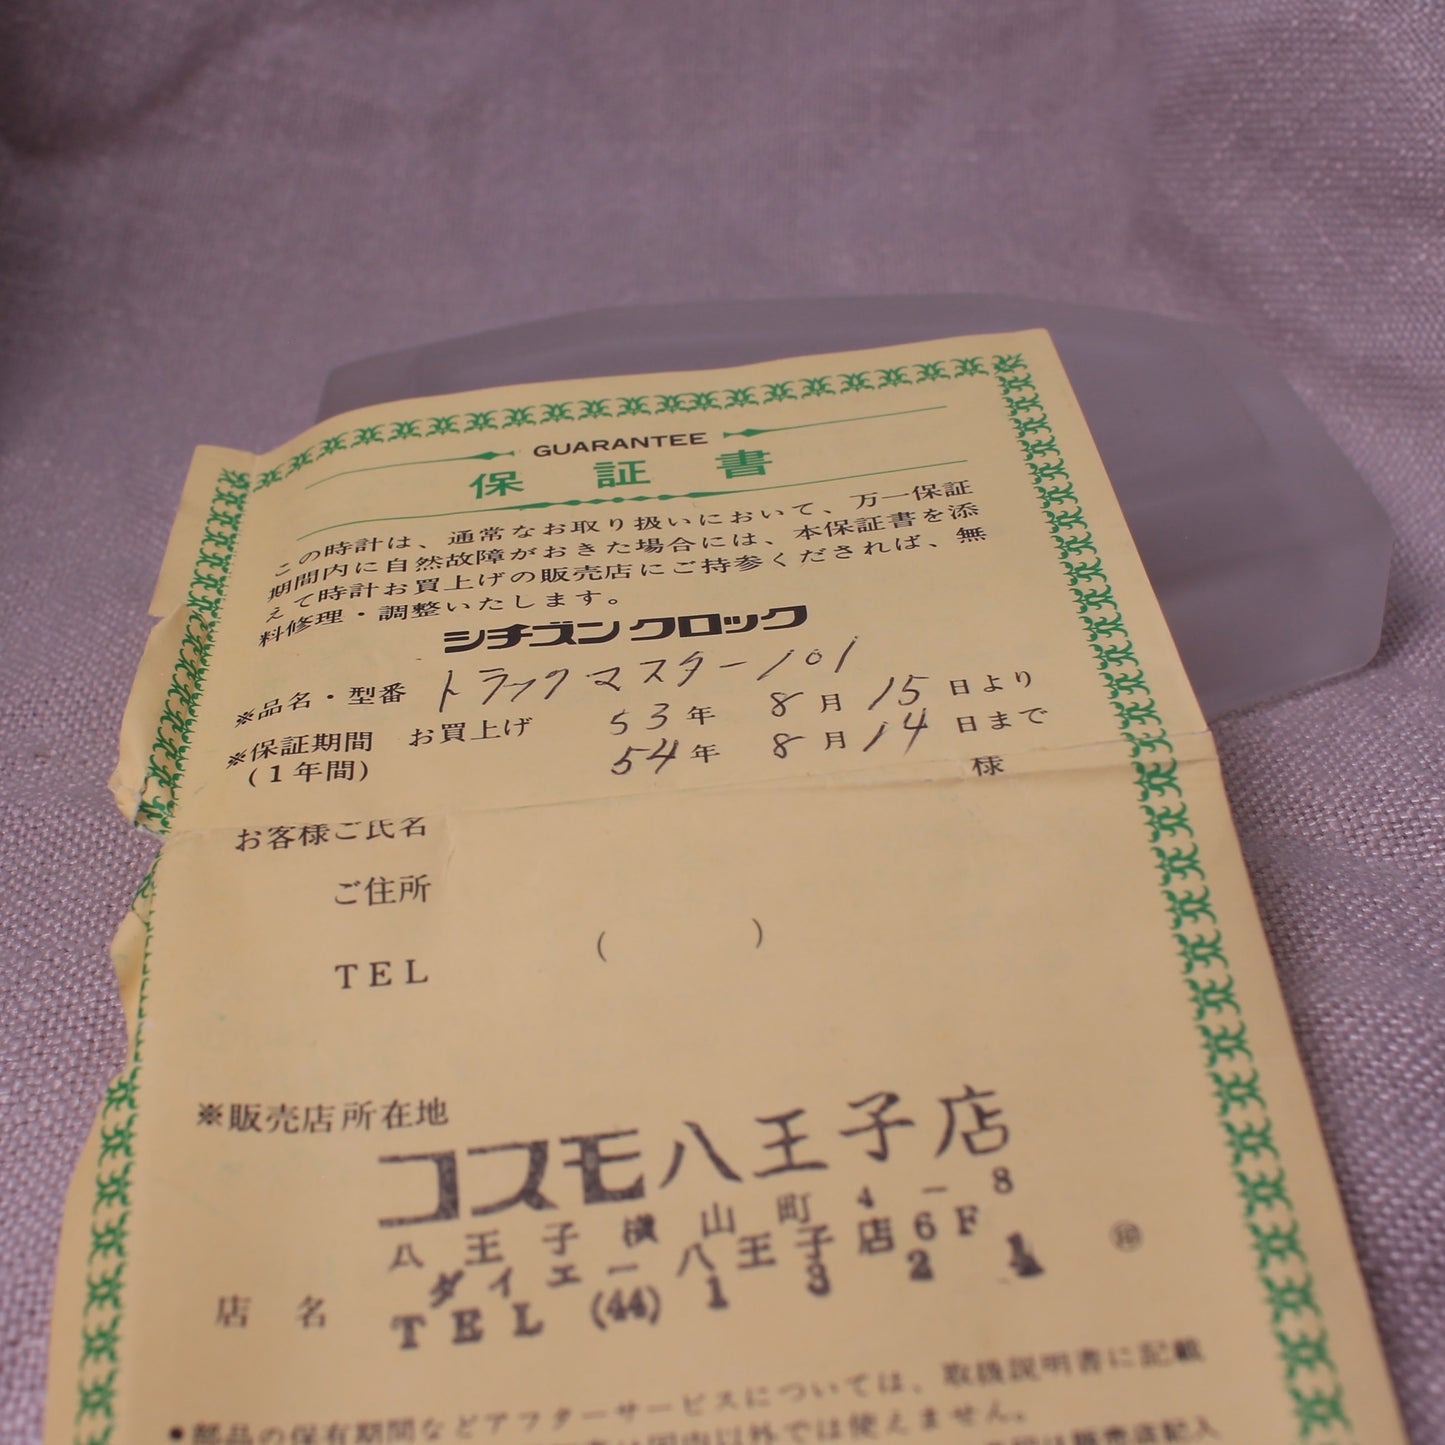 GUARANTEE
保証書
この時計は、通常なお取り扱いにおいて、万一保証
期間内に自然故障がおきた場合には、本保証書を添
えて時計お買上げの販売店にご持参くだされば、無
料修理・調整いたします。
シチズンクロック
※品名・型番 トラックマスター101
※保証期間 お買上げ 53年 8月 15日より
(1年間) 54年 8月 14日まで
お客様ご氏名 様
ご住所
TEL ( )
※販売店所在地
コスモ八王子店
八王子横山町4-8
ダイエー八王子店6F
店名 TEL (44) 1321
印
●部品の保有期間などアフターサービスについては、取扱説明書に記載
国内以外では使えません。